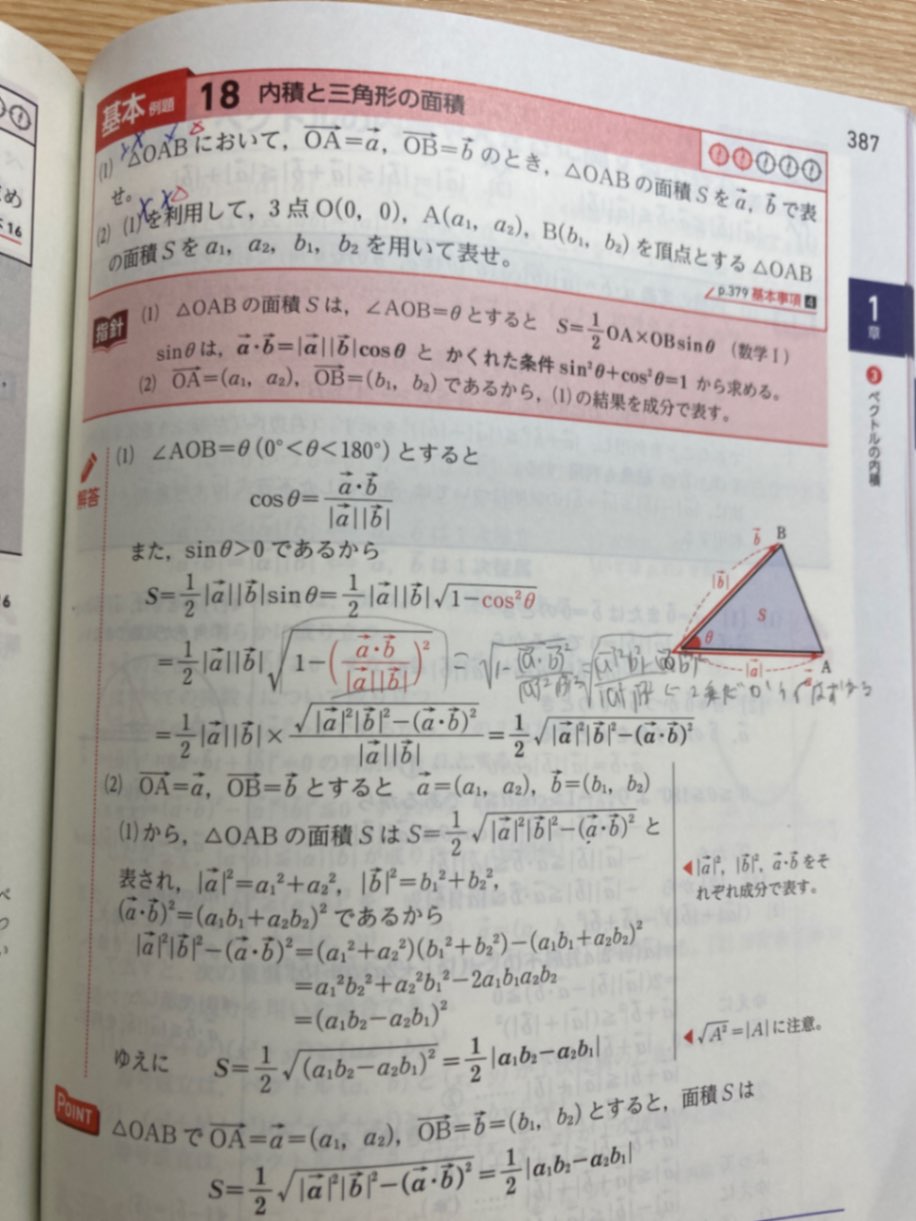 基本 例題 18 内積と三角形の面積
387
(1) △OABにおいて，$\overrightarrow{OA}=\vec{a}$，$\overrightarrow{OB}=\vec{b}$ のとき，△OABの面積 S を $\vec{a}$，$\vec{b}$ で表
せ。
(2) (1)を利用して，3点 O(0, 0)，A(a₁, a₂)，B(b₁, b₂) を頂点とする △OAB
の面積 S を a₁，a₂，b₁，b₂ を用いて表せ。
p.379 基本事項 4
指針
(1) △OAB の面積 S は，∠AOB=θ とすると $S=\frac{1}{2}OA×OB\sinθ$ （数学Ⅰ）
sinθ は，$\vec{a}\cdot\vec{b}=|\vec{a}||\vec{b}|\cosθ$ と かくれた条件 sin²θ+cos²θ=1 から求める。
(2) $\overrightarrow{OA}$=(a₁, a₂)，$\overrightarrow{OB}$=(b₁, b₂) であるから，(1)の結果を成分で表す。
1
章
3 ベクトルの内積
解答
(1) ∠AOB=θ (0°<θ<180°) とすると
$\cosθ=\frac{\vec{a}\cdot\vec{b}}{|\vec{a}||\vec{b}|}$
また，sinθ>0 であるから
$S=\frac{1}{2}|\vec{a}||\vec{b}|\sinθ=\frac{1}{2}|\vec{a}||\vec{b}|\sqrt{1-\cos^2θ}$
$=\frac{1}{2}|\vec{a}||\vec{b}|\sqrt{1-\left(\frac{\vec{a}\cdot\vec{b}}{|\vec{a}||\vec{b}|}\right)^2}$
$=\frac{1}{2}|\vec{a}||\vec{b}|×\frac{\sqrt{|\vec{a}|^2|\vec{b}|^2-(\vec{a}\cdot\vec{b})^2}}{|\vec{a}||\vec{b}|}=\frac{1}{2}\sqrt{|\vec{a}|^2|\vec{b}|^2-(\vec{a}\cdot\vec{b})^2}$
$\vec{b}$ B
$|\vec{b}|$
S
θ
$|\vec{a}|$ A
$\vec{a}$
(2) $\overrightarrow{OA}=\vec{a}$，$\overrightarrow{OB}=\vec{b}$ とすると $\vec{a}$=(a₁, a₂)，$\vec{b}$=(b₁, b₂)
(1)から，△OAB の面積 S は $S=\frac{1}{2}\sqrt{|\vec{a}|^2|\vec{b}|^2-(\vec{a}\cdot\vec{b})^2}$ と
表され，$|\vec{a}|^2$=a₁²+a₂²，$|\vec{b}|^2$=b₁²+b₂²，
$(\vec{a}\cdot\vec{b})^2$=(a₁b₁+a₂b₂)² であるから
$|\vec{a}|^2|\vec{b}|^2-(\vec{a}\cdot\vec{b})^2$=(a₁²+a₂²)(b₁²+b₂²)-(a₁b₁+a₂b₂)²
=a₁²b₂²+a₂²b₁²-2a₁b₁a₂b₂
=(a₁b₂-a₂b₁)²
ゆえに $S=\frac{1}{2}\sqrt{(a_1b_2-a_2b_1)^2}=\frac{1}{2}|a_1b_2-a_2b_1|$
◀$|\vec{a}|^2$，$|\vec{b}|^2$，$\vec{a}\cdot\vec{b}$ をそ
れぞれ成分で表す。
◀$\sqrt{A^2}=|A|$ に注意。
POINT
△OAB で $\overrightarrow{OA}=\vec{a}$=(a₁, a₂)，$\overrightarrow{OB}=\vec{b}$=(b₁, b₂) とすると，面積 S は
$S=\frac{1}{2}\sqrt{|\vec{a}|^2|\vec{b}|^2-(\vec{a}\cdot\vec{b})^2}=\frac{1}{2}|a_1b_2-a_2b_1|$